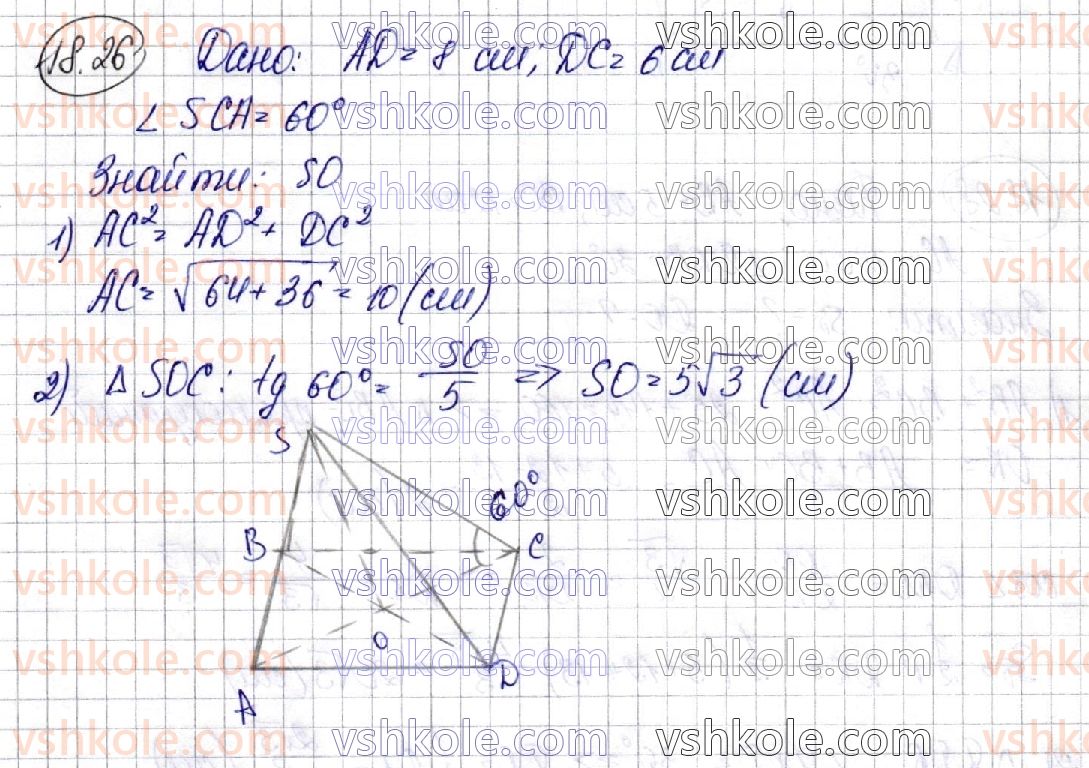 18.26 Дано: AD = 8 см; DC = 6 см
∠ SCA = 60°
Знайти: SO
1) AC² = AD² + DC²
AC = √(64 + 36) = 10 (см)
2) △ SOC: tg 60° = SO/5 => SO = 5√3 (см)
S
60°
B C
O
A D
vshkole.com